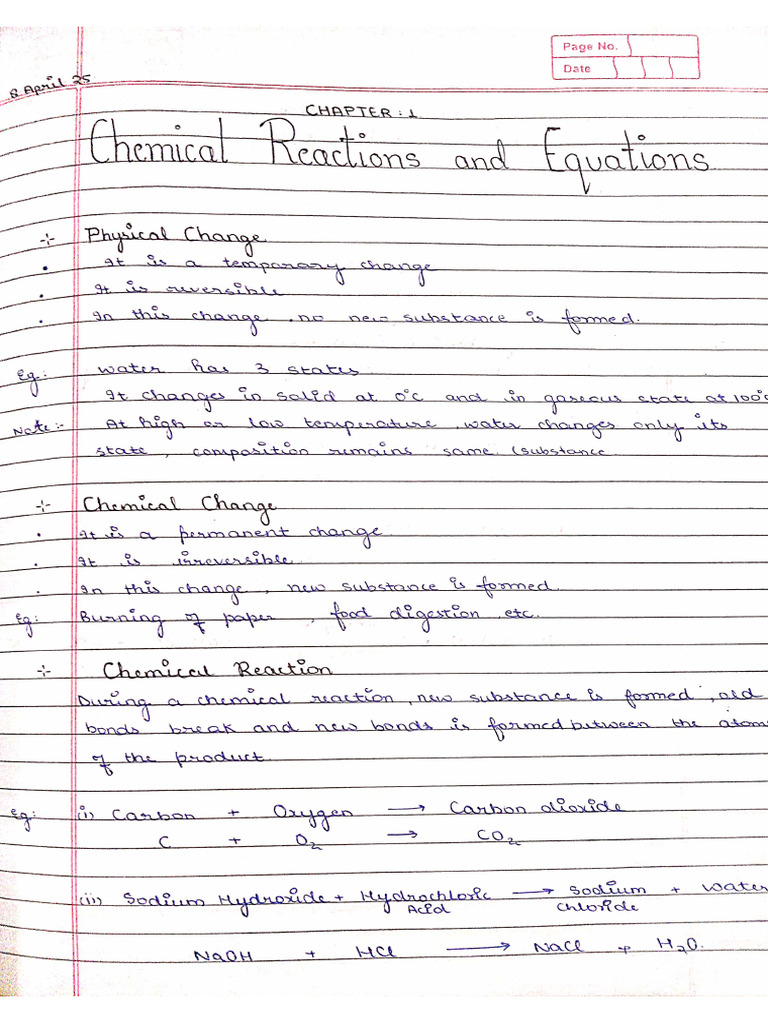 Page No.
Date
8 April 25
CHAPTER : 1
Chemical Reactions and Equations
÷ Physical Change
• It is a temporary change
• It is reversible
• In this change, no new substance is formed.
Eg: water has 3 states
It changes in solid at 0°c and in gaseous state at 100°c
Note:- At high or low temperature, water changes only its
state, composition remains same (substance
÷ Chemical Change
• It is a permanent change
• It is irreversible
• In this change, new substance is formed
Eg: Burning of paper, food digestion, etc.
÷ Chemical Reaction
During a chemical reaction, new substance is formed, old
bonds break and new bonds is formed between the atoms
of the product.
Eg: (i) Carbon + Oxygen → Carbon dioxide
C + O₂ → CO₂
(ii) Sodium Hydroxide + Hydrochloric → Sodium + Water
Acid Chloride
NaOH + HCl → NaCl + H₂O.